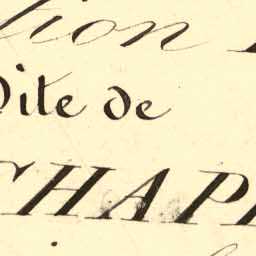 tion
Dite de
CHAP